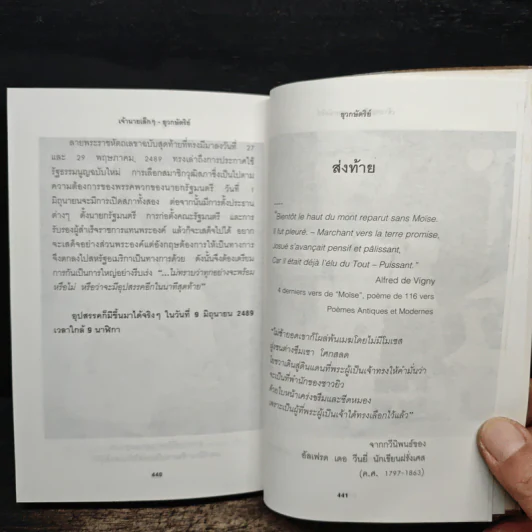 เจ้านายเล็กๆ – ยุวกษัตริย์
ลายพระราชหัตถเลขาฉบับสุดท้ายที่ทรงมีมาลงวันที่ 27
และ 29 พฤษภาคม, 2489 ทรงเล่าถึงการประกาศใช้
รัฐธรรมนูญฉบับใหม่ การเลือกสมาชิกวุฒิสภาซึ่งเป็นไปตาม
ความต้องการของพรรคพวกของนายกรัฐมนตรี วันที่ 1
มิถุนายนจะมีการเปิดสภาทั้งสอง ต่อจากนั้นมีการตั้งประธาน
ต่างๆ ตั้งนายกรัฐมนตรี การก่อตั้งคณะรัฐมนตรี และการ
รับรองผู้สำเร็จราชการแทนพระองค์ แล้วก็จะเสด็จไปได้ อยาก
จะเสด็จอย่างส่วนพระองค์แต่อังกฤษต้องการให้เป็นทางการ
จึงตกลงไปสหรัฐอเมริกาเป็นทางการด้วย ดังนั้นจึงต้องเตรียม
การกันเป็นการใหญ่อย่างรีบเร่ง "...ไม่ทราบว่าทุกอย่างจะพร้อม
หรือไม่ หรือว่าจะมีอุปสรรคอีกในนาทีสุดท้าย"
อุปสรรคก็มีขึ้นมาได้จริงๆ ในวันที่ 9 มิถุนายน 2489
เวลาใกล้ 9 นาฬิกา
440
ยุวกษัตริย์
ส่งท้าย
....
"Bientôt le haut du mont reparut sans Moïse.
Il fut pleuré. – Marchant vers la terre promise,
Josué s'avançait pensif et pâlissant,
Car il était déjà l'élu du Tout – Puissant."
Alfred de Vigny
4 derniers vers de "Moïse", poème de 116 vers
Poèmes Antiques et Modernes
"ไม่ช้ายอดเขาก็โผล่พ้นเมฆโดยไม่มีโมเสส
ฝูงชนต่างซึมเซา โศกสลด
โยชวาเดินสู่ดินแดนที่พระผู้เป็นเจ้าทรงให้คำมั่นว่า
จะเป็นที่พำนักของชาวยิว
ด้วยใบหน้าเคร่งขรึมและซีดหมอง
เพราะเป็นผู้ที่พระผู้เป็นเจ้าได้ทรงเลือกไว้แล้ว"
จากกวีนิพนธ์ของ
อัลเฟรด เดอ วีนยี่ นักเขียนฝรั่งเศส
(ค.ศ. 1797-1863)
441